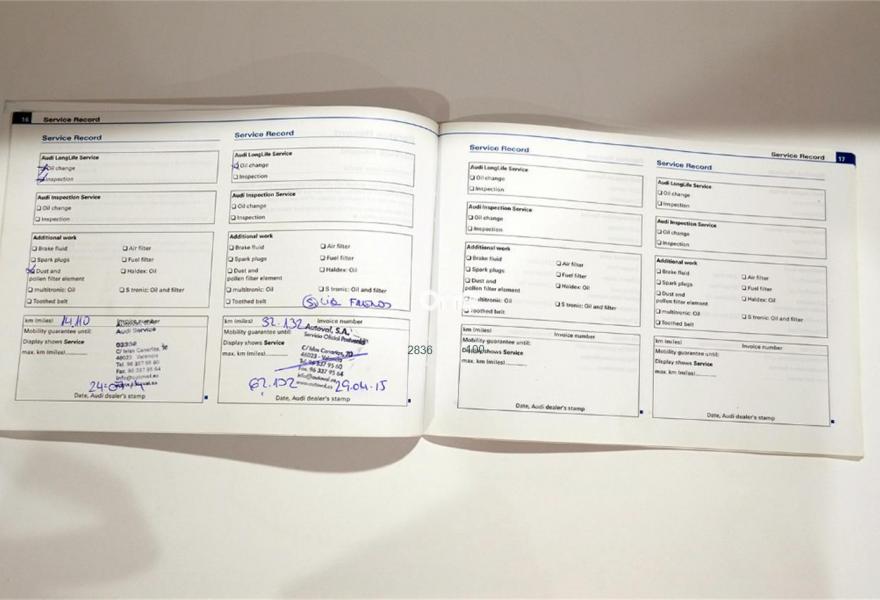 16 Service Record
Service Record
Audi LongLife Service
Oil change
Inspection
Audi Inspection Service
Oil change
Inspection
Additional work
Brake fluid
Air filter
Spark plugs
Fuel filter
Dust and
pollen filter element
Haldex: Oil
multitronic: Oil
S tronic: Oil and filter
Toothed belt
km (miles)
Invoice number
Mobility guarantee until:
Audi Service
Display shows Service
max. km (miles)
C/ Islas Canarias,
46023 - Valencia
Tel. 96 337 95 60
Fax. 96 337 95 64
Date, Audi dealer's stamp
Service Record
Audi LongLife Service
Oil change
Inspection
Audi Inspection Service
Oil change
Inspection
Additional work
Brake fluid
Air filter
Spark plugs
Fuel filter
Dust and
pollen filter element
Haldex: Oil
multitronic: Oil
S tronic: Oil and filter
Toothed belt
km (miles)
Invoice number
Mobility guarantee until:
Autoval, S.A.
Servicio Oficial Postventa
Display shows Service
max. km (miles)
C/ Islas Canarias, 70
46023 - Valencia
Tel. 96 337 95 60
Fax. 96 337 95 64
62.132 29.04.15
Date, Audi dealer's stamp
2836
400
Service Record 17
Service Record
Audi LongLife Service
Oil change
Inspection
Audi Inspection Service
Oil change
Inspection
Additional work
Brake fluid
Air filter
Spark plugs
Fuel filter
Dust and
pollen filter element
Haldex: Oil
multitronic: Oil
S tronic: Oil and filter
Toothed belt
km (miles)
Invoice number
Mobility guarantee until:
Display shows Service
max. km (miles)
Date, Audi dealer's stamp
Service Record
Audi LongLife Service
Oil change
Inspection
Audi Inspection Service
Oil change
Inspection
Additional work
Brake fluid
Air filter
Spark plugs
Fuel filter
Dust and
pollen filter element
Haldex: Oil
multitronic: Oil
S tronic: Oil and filter
Toothed belt
km (miles)
Invoice number
Mobility guarantee until:
Display shows Service
max. km (miles)
Date, Audi dealer's stamp